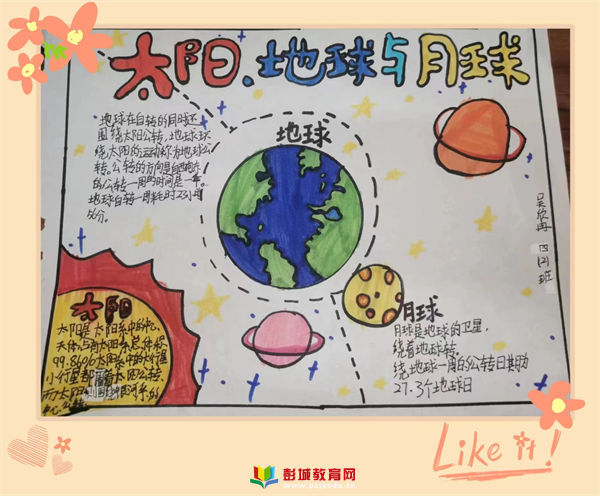 太阳、地球与月球
地球在自转的同时还
围绕太阳公转,地球环
绕太阳的运动称为地球公
转。公转的方向是自西向东
的公转一周的时间是一年。
地球自转一周耗时23小时
56分。
地球
吴欣冉 四(2)班
太阳
太阳是太阳系中的中心
天体,占有太阳系总体积
99.86%太阳系中的大行星
小行星
太阳公转,
而太阳
月球
月球是地球的卫星,
绕着地球转。
绕地球一周的公转日其助
27.3个地球日
Like it!
彭城教育网